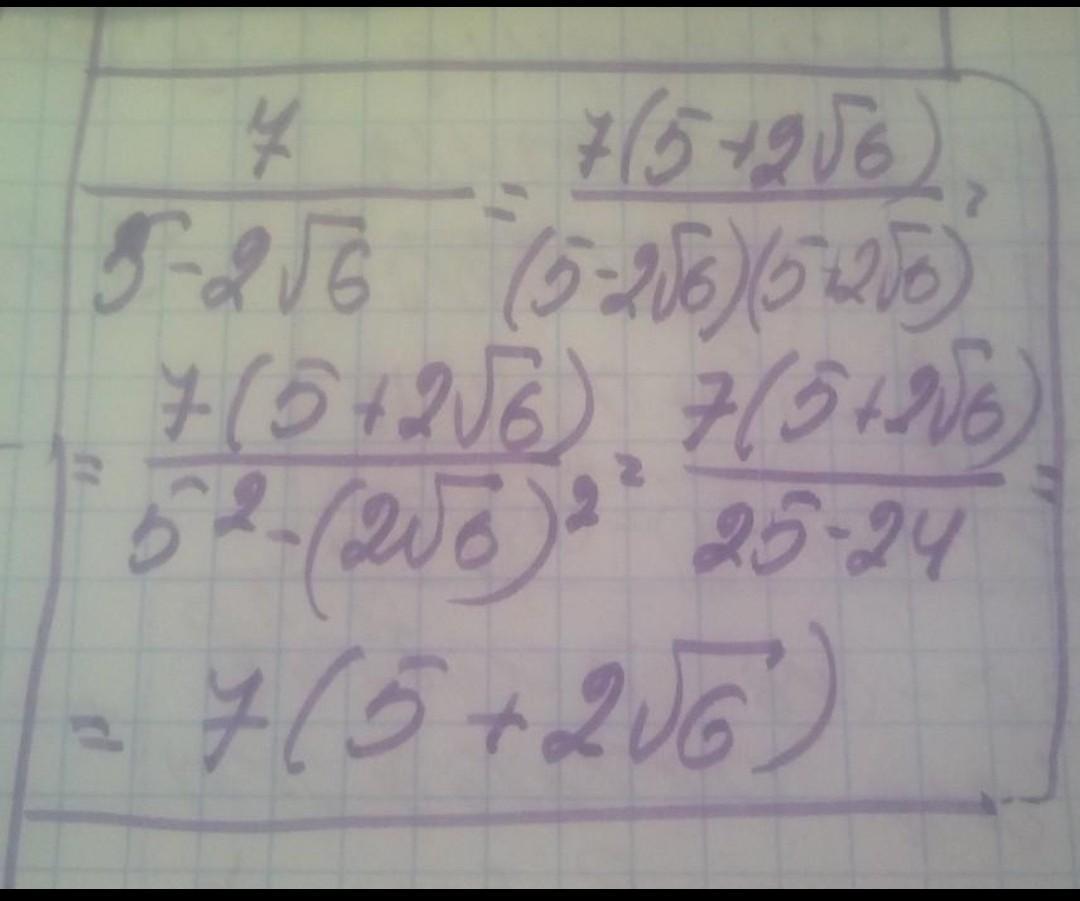 7/(5-2√6) = 7(5+2√6)/((5-2√6)(5+2√6)) =
= 7(5+2√6)/(5²-(2√6)²) = 7(5+2√6)/(25-24) =
= 7(5+2√6)